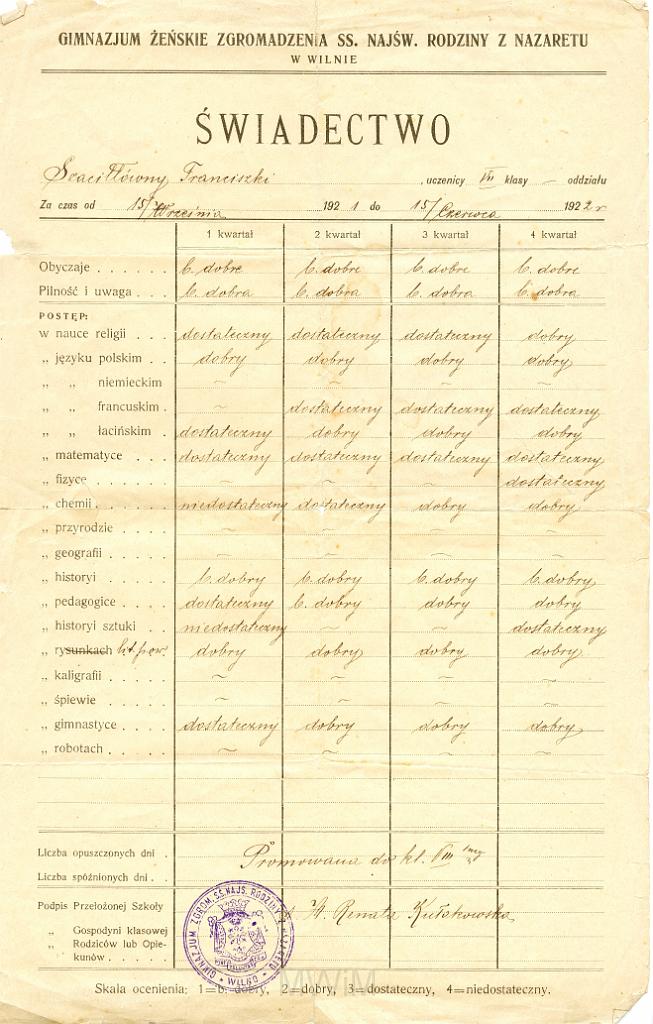 GIMNAZJUM ŻEŃSKIE ZGROMADZENIA SS. NAJŚW. RODZINY Z NAZARETU
W WILNIE
ŚWIADECTWO
Franciszki , uczenicy VII klasy — oddziału
Za czas od 15/Września 1921 do 15/Czerwca 1922 r
1 kwartał 2 kwartał 3 kwartał 4 kwartał
Obyczaje . . . . . . b. dobre b. dobre b. dobre b. dobre
Pilność i uwaga . . . b. dobra b. dobra b. dobra b. dobra
POSTĘP:
w nauce religii . . . . dostateczny dostateczny dostateczny dobry
„ języku polskim . . dobry dobry dobry dobry
„ „ niemieckim — — — —
„ „ francuskim . — dostateczny dostateczny dostateczny
„ „ łacińskim . dostateczny dobry dobry dobry
„ matematyce . . . . dostateczny dostateczny dostateczny dostateczny
„ fizyce . . . . . — — — dostateczny
„ chemii . . . . . niedostateczny dostateczny dobry dobry
„ przyrodzie . . . . — — — —
„ geografii . . . . . — — — —
„ historyi . . . . . b. dobry b. dobry b. dobry b. dobry
„ pedagogice . . . . dostateczny b. dobry dobry dobry
„ historyi sztuki . . . niedostateczny — — dostateczny
„ rysunkach lit. pow. dobry dobry dobry dobry
„ kaligrafii . . . . . — — — —
„ śpiewie . . . . . — — — —
„ gimnastyce . . . . dostateczny dobry dobry dobry
„ robotach . . . . . — — — —
Liczba opuszczonych dni . Promowana do kl. VIII
Liczba spóźnionych dni . .
Podpis Przełożonej Szkoły Renata Kułakowska
„ Gospodyni klasowej
„ Rodziców lub Opie-
kunów . . . . .
GIMNAZJUM ZGROM. SS. NAJŚ. RODZINY Z NAZARETU
WILNO
MWiM
Skala ocenienia: 1=b. dobry, 2=dobry, 3=dostateczny, 4=niedostateczny.